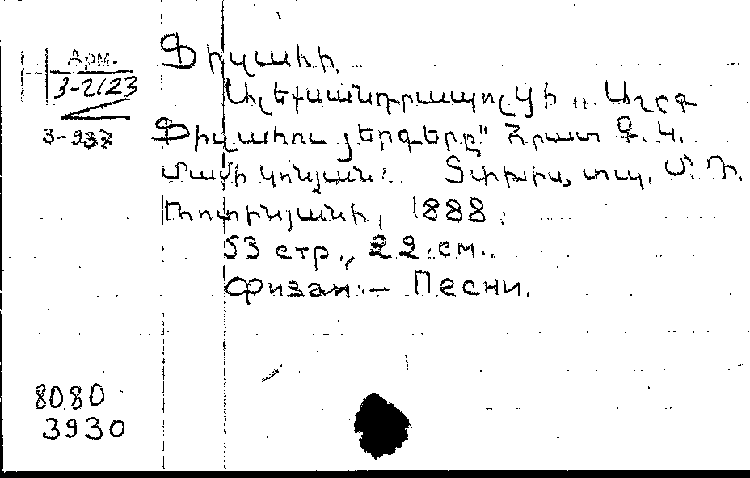 Арм.
3-2123
3-937
Ֆիզահի
Ալեքսանդրապոլցի „ Աշըղ
Ֆիզահու երգերը" Հրատ Գ. Կ.
Թիֆլիս, տպ. Մ. Դ.
Ռոտինյանի, 1888.
53 стр., 22 см.
Физаи — Песни.
8080
3930